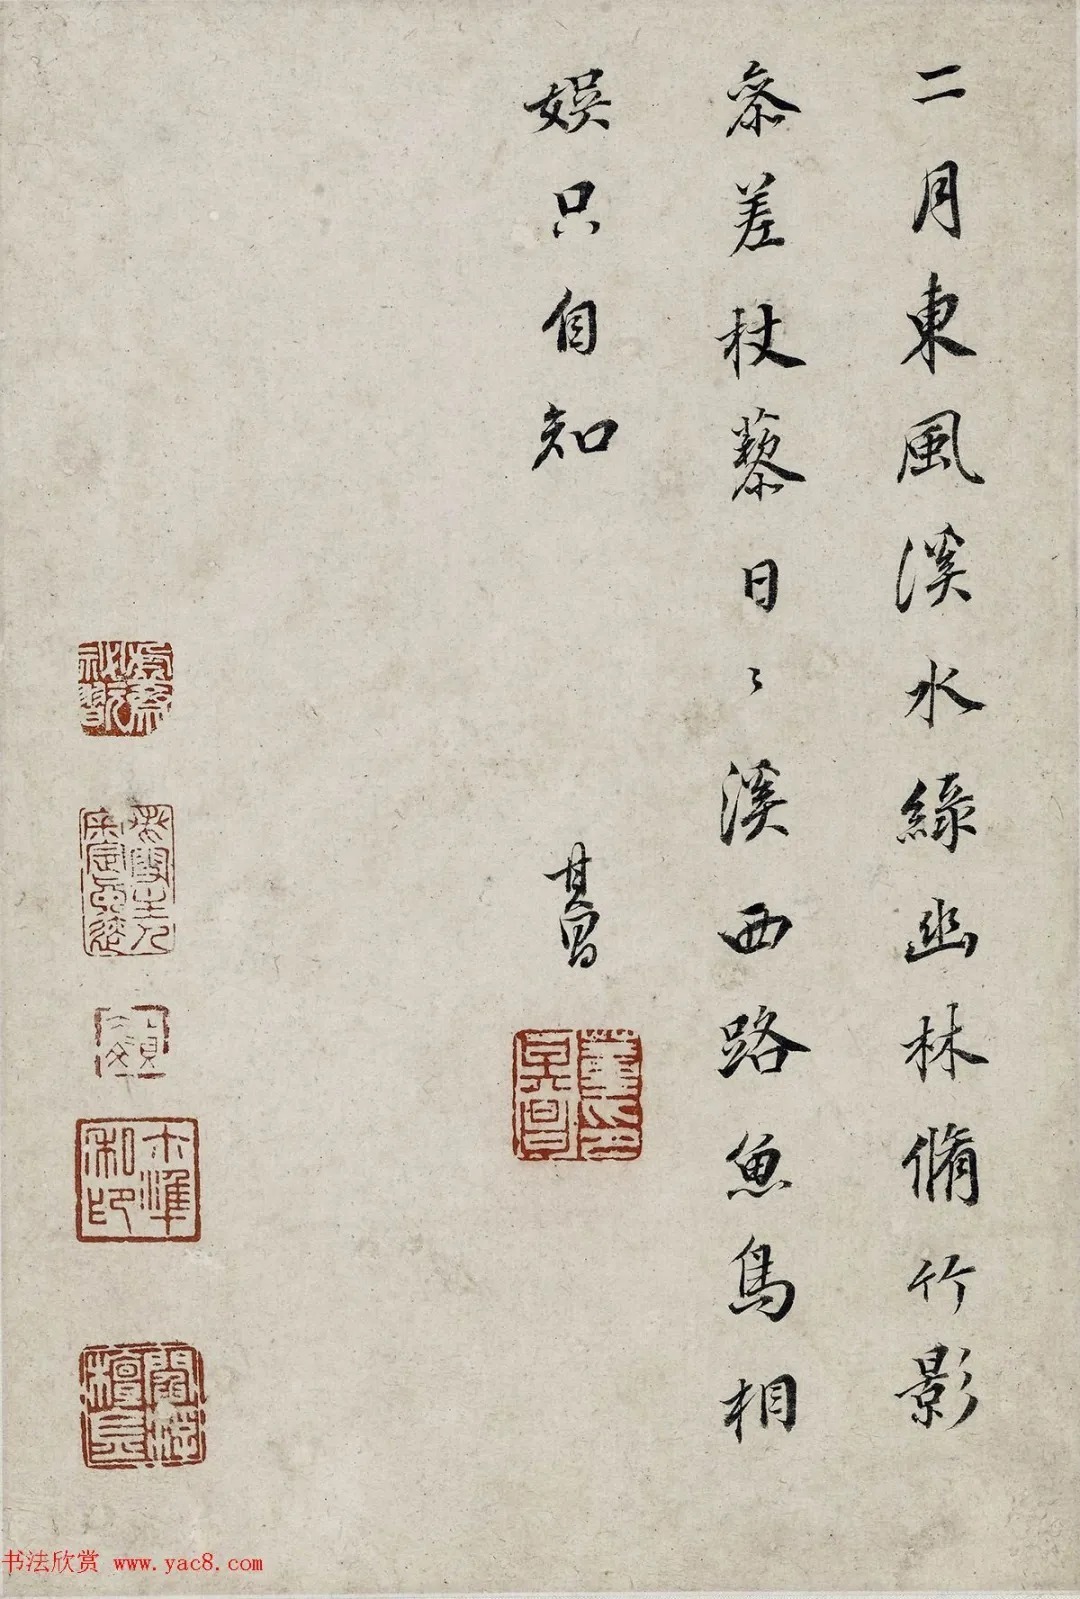 二月東風溪水綠幽林脩竹影
參差杖藜日〻溪西路魚鳥相
娛只自知
其昌
董其昌印
宋準私印
书法欣赏 www.yac8.com